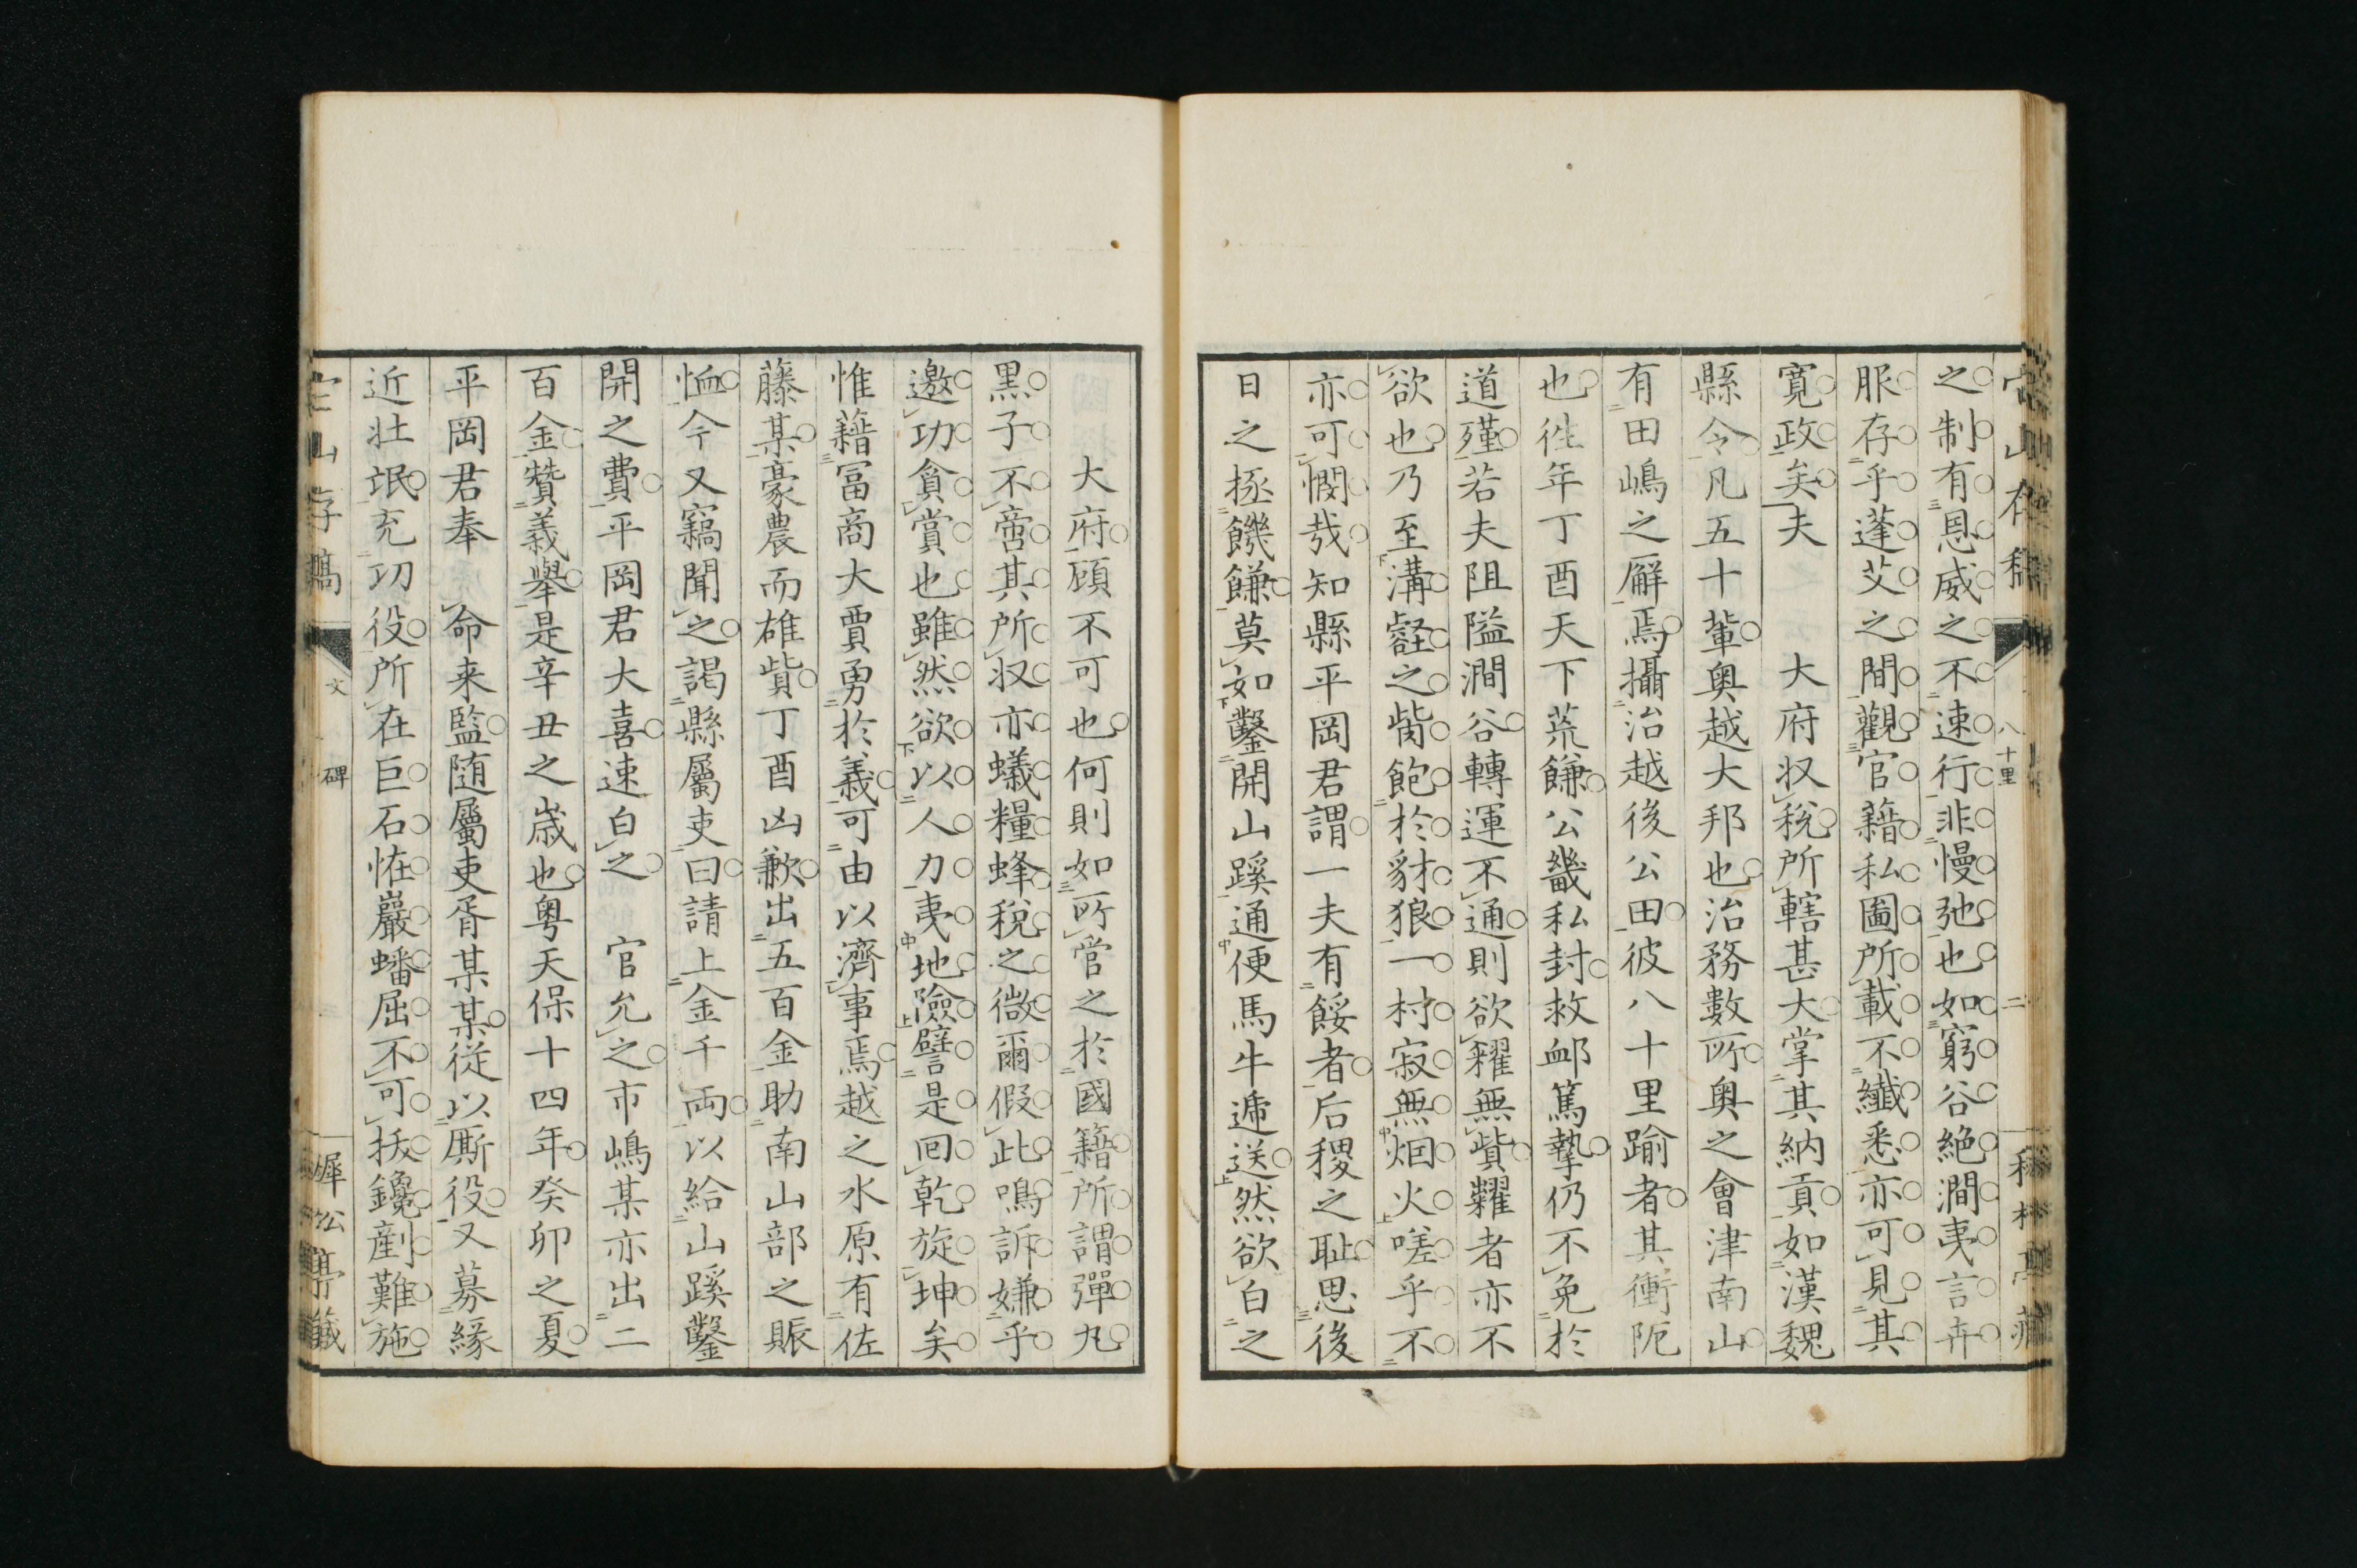 之制有恩威之不速行非慢弛也如窮谷絶澗夷言卉
服存乎蓬艾之間觀官藉私圖所載不纖悉亦可見其
寛政矣夫 大府収稅所轄甚大掌其納貢如漢魏
縣令凡五十輩奥越大邦也治務數所奥之會津南山
有田嶋之廨焉攝治越後公田彼八十里踰者其衝阨
也徃年丁酉天下荒饑公畿私封救衈篤摯仍不免於
道殣若夫阻隘澗谷轉運不通則欲糴無貲糶者亦不
欲也乃至溝壑之胔飽於豺狼一村寂無烟火嗟乎不
亦可憫哉知縣平岡君謂一夫有餒者后稷之耻思後
日之拯饑饉莫如鑿開山蹊通便馬牛遞送然欲白之
大府顧不可也何則如所営之於國籍所謂彈丸
黒子不啻其所収亦蟻糧蜂稅之微爾假此鳴訴嫌乎
邀功貪賞也雖然欲以人力夷地險譬是回乾旋坤矣
惟藉冨商大賈勇於義可由以濟事焉越之水原有佐
藤某豪農而雄貲丁酉凶歉出五百金助南山部之賑
恤今又竊聞之謁縣屬吏曰請上金千両以給山蹊鑿
開之費平岡君大喜速白之 官允之市嶋某亦出二
百金贊義舉是辛丑之歳也粤天保十四年癸卯之夏
平岡君奉 命来監随屬吏胥某某従以厮役又募縁
近壮氓充功役所在巨石恠巖蟠屈不可㧞鑱剷難施
山存稿
文
碑
八十里
二